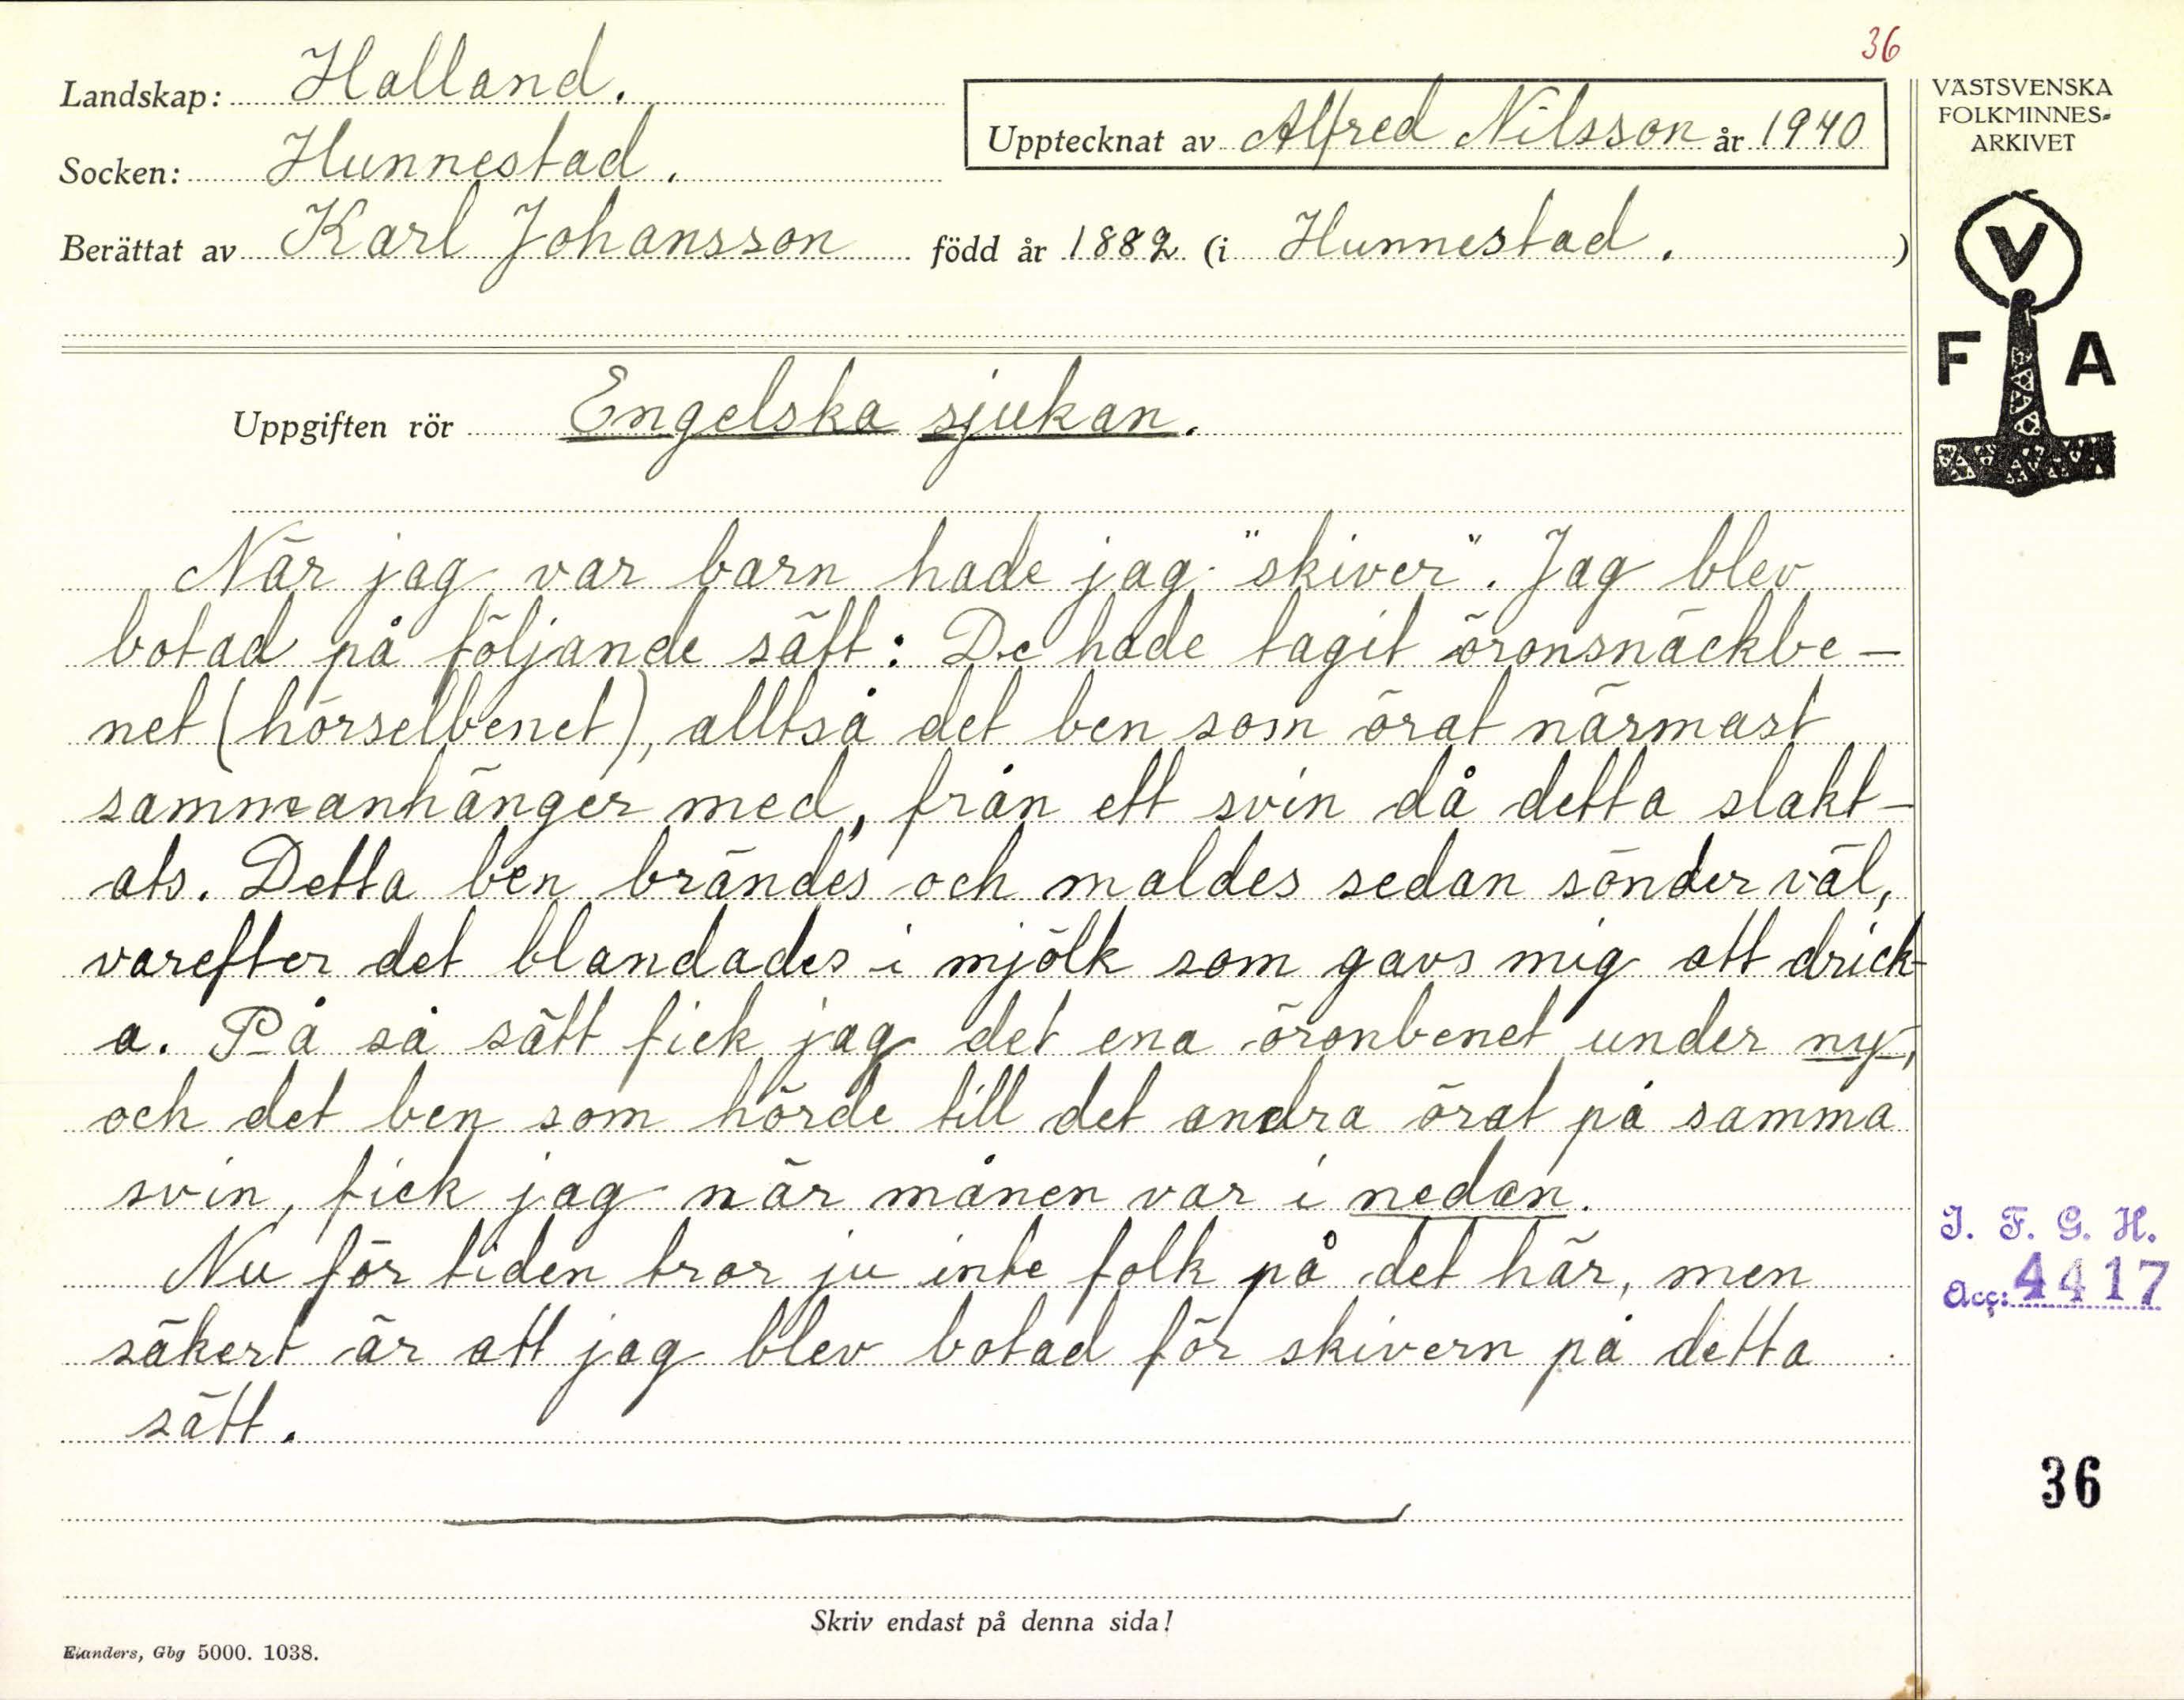 36
Landskap: Halland.
Upptecknat av Alfred Nilsson år 1940
VÄSTSVENSKA
FOLKMINNES-
ARKIVET
Socken: Hunnestad.
Berättat av Karl Johansson född år 1882 (i Hunnestad. )
V
F A
Uppgiften rör Engelska sjukan.
När jag var barn hade jag "skiver". Jag blev
botad på följande sätt: De hade tagit öronsnäckbe-
net (hörselbenet), alltså det ben som örat närmast
sammanhänger med, från ett svin då detta slakt-
ats. Detta ben brändes och maldes sedan sönder väl,
varefter det blandades i mjölk som gavs mig att drick-
a. På så sätt fick jag det ena öronbenet under ny,
och det ben som hörde till det andra örat på samma
svin, fick jag när månen var i nedan.
Nu för tiden tror ju inte folk på det här, men
säkert är att jag blev botad för skivern på detta
sätt.
I. F. G. H.
Acc: 4417
36
Skriv endast på denna sida!
Elanders, Gbg 5000. 1038.